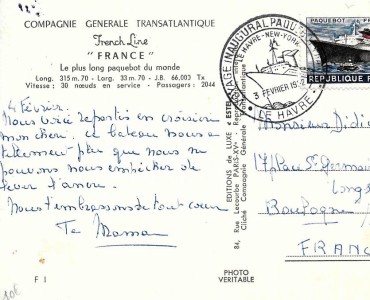 COMPAGNIE GENERALE TRANSATLANTIQUE
French Line
"FRANCE"
Le plus long paquebot du monde
Long. 315 m. 70 - Larg. 33 m. 70 - J.B. 66,003 Tx
Vitesse : 30 nœuds en service - Passagers : 2044
4 février.
Nous voici repartis en croisière
mon chéri. Ce bateau nous a
tellement plu que nous ne
pouvons nous empêcher de
Nous t'embrassons de tout cœur
Ta Maman
F 1
PHOTO
VERITABLE
EDITIONS de LUXE - ESTEL
84, Rue Lecourbe PARIS-XVe
Cliché Compagnie Générale
VOYAGE INAUGURAL PAQUEBOT
LE HAVRE-NEW-YORK
3 FEVRIER 19
LE HAVRE
PAQUEBOT
REPUBLIQUE
Monsieur Didi
17 place St Germain
Longs
Boulogne
FRANC